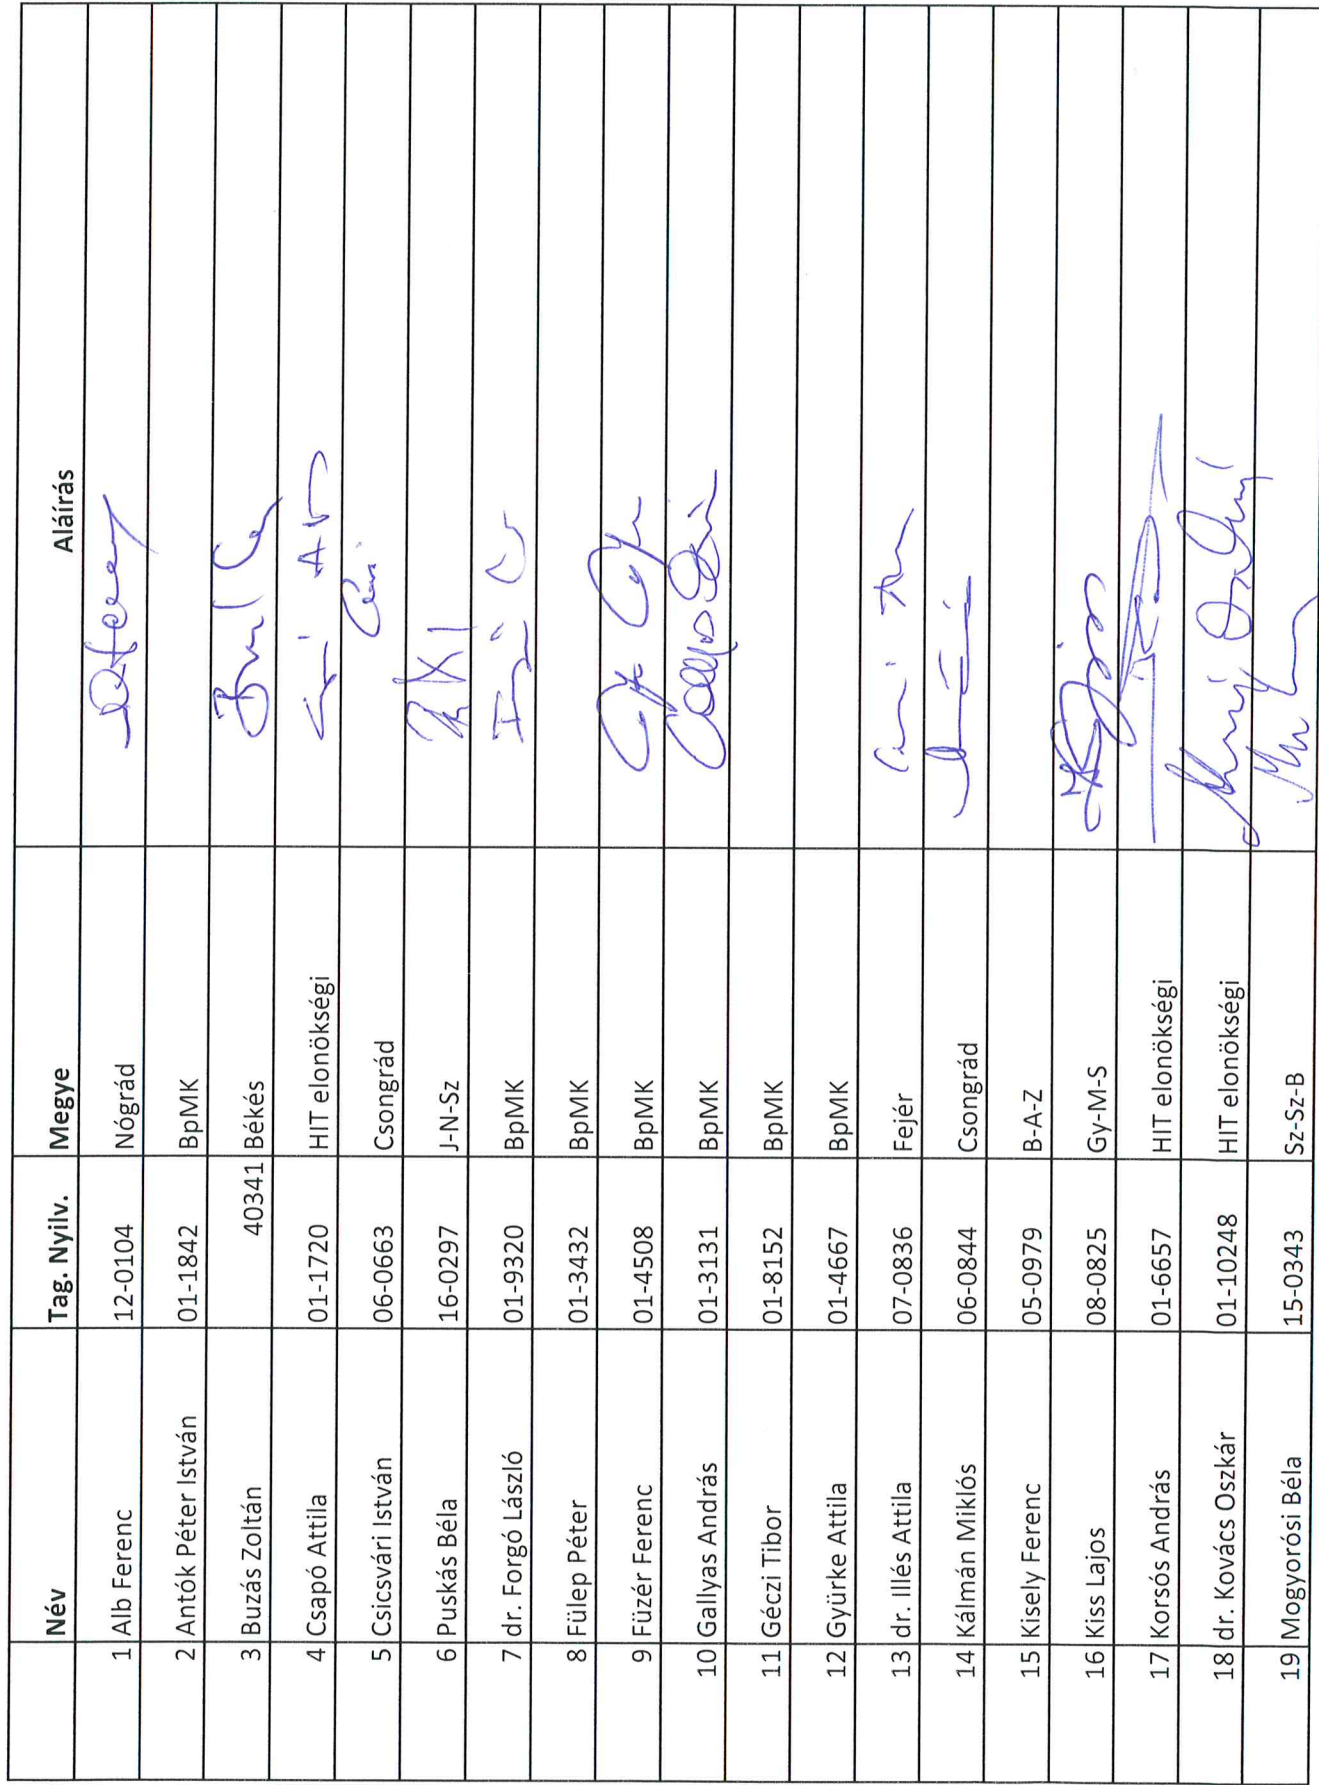 Név Tag. Nyilv. Megye Aláírás
1 Alb Ferenc 12-0104 Nógrád
2 Antók Péter István 01-1842 BpMK
3 Buzás Zoltán 40341 Békés
4 Csapó Attila 01-1720 HIT elonökségi
5 Csicsvári István 06-0663 Csongrád
6 Puskás Béla 16-0297 J-N-Sz
7 dr. Forgó László 01-9320 BpMK
8 Fülep Péter 01-3432 BpMK
9 Füzér Ferenc 01-4508 BpMK
10 Gallyas András 01-3131 BpMK
11 Géczi Tibor 01-8152 BpMK
12 Gyürke Attila 01-4667 BpMK
13 dr. Illés Attila 07-0836 Fejér
14 Kálmán Miklós 06-0844 Csongrád
15 Kisely Ferenc 05-0979 B-A-Z
16 Kiss Lajos 08-0825 Gy-M-S
17 Korsós András 01-6657 HIT elonökségi
18 dr. Kovács Oszkár 01-10248 HIT elonökségi
19 Mogyorósi Béla 15-0343 Sz-Sz-B